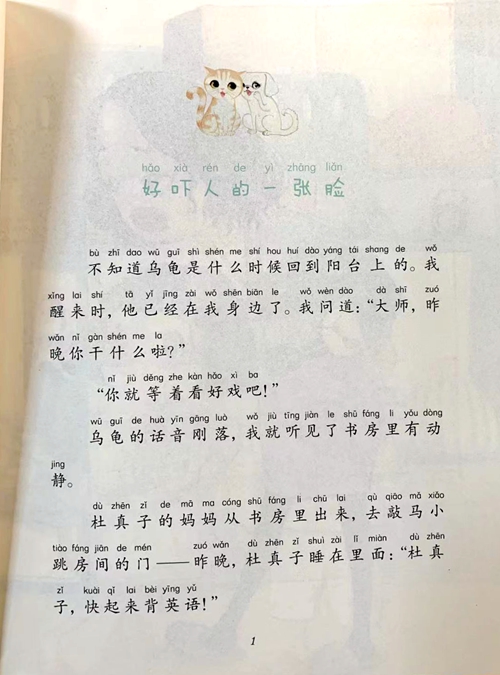 hǎo xià rén de yì zhāng liǎn
好吓人的一张脸
bù zhī dao wū guī shì shén me shí hou huí dào yáng tái shang de wǒ
不知道乌龟是什么时候回到阳台上的。我
xǐng lai shí tā yǐ jīng zài wǒ shēn biān le wǒ wèn dào dà shī zuó
醒来时，他已经在我身边了。我问道：“大师，昨
wǎn nǐ gàn shén me la
晚你干什么啦？”
nǐ jiù děng zhe kàn hǎo xì ba
“你就等着看好戏吧！”
wū guī de huà yīn gāng luò wǒ jiù tīng jiàn le shū fáng li yǒu dòng
乌龟的话音刚落，我就听见了书房里有动
jing
静。
dù zhēn zǐ de mā ma cóng shū fáng li chū lai qù qiāo mǎ xiǎo
杜真子的妈妈从书房里出来，去敲马小
tiào fáng jiān de mén zuó wǎn dù zhēn zǐ shuì zài lǐ miàn dù zhēn
跳房间的门——昨晚，杜真子睡在里面：“杜真
zǐ kuài qǐ lai bèi yīng yǔ
子，快起来背英语！”
1